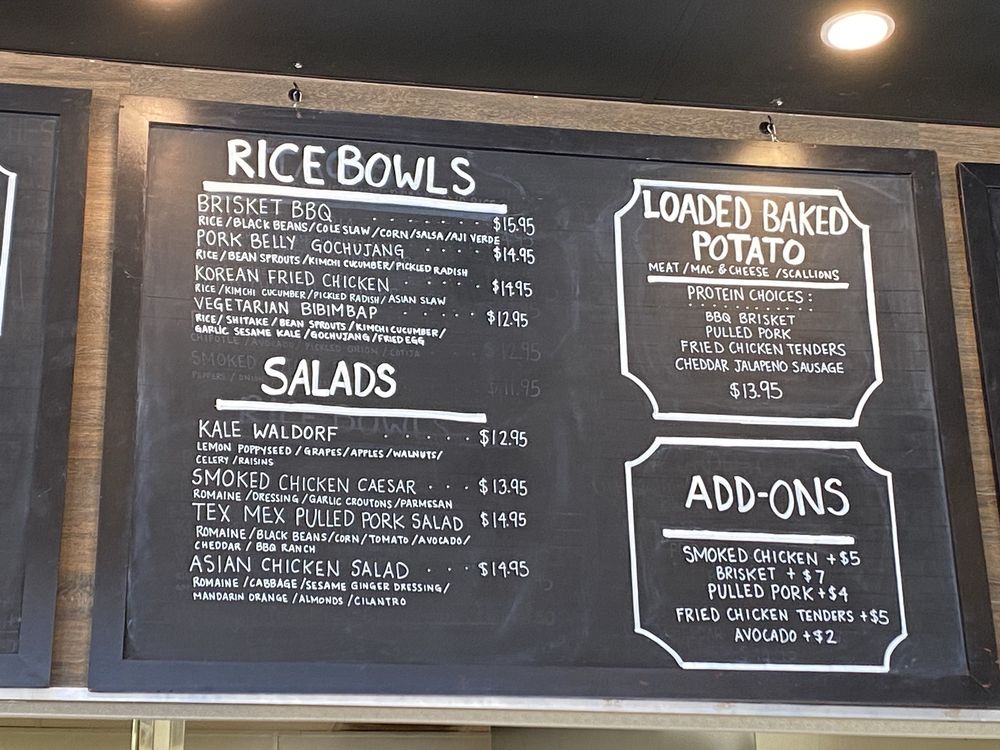 RICE BOWLS
BRISKET BBQ . . . . . . $15.95
RICE/BLACK BEANS/COLE SLAW/CORN/SALSA/AJI VERDE
PORK BELLY GOCHUJANG . . . . $14.95
RICE/BEAN SPROUTS/KIMCHI CUCUMBER/PICKLED RADISH
KOREAN FRIED CHICKEN . . . . $14.95
RICE/KIMCHI CUCUMBER/PICKLED RADISH/ASIAN SLAW
VEGETARIAN BIBIMBAP . . . . . $12.95
RICE/SHITAKE/BEAN SPROUTS/KIMCHI CUCUMBER/
GARLIC SESAME KALE/GOCHUJANG/FRIED EGG
CHIPOTLE/AVOCADO/PICKLED ONION/COTIJA
$12.95
SMOKED
$11.95
SALADS
KALE WALDORF . . . . . $12.95
LEMON POPPYSEED/GRAPES/APPLES/WALNUTS/
CELERY/RAISINS
SMOKED CHICKEN CAESAR . . . $13.95
ROMAINE/DRESSING/GARLIC CROUTONS/PARMESAN
TEX MEX PULLED PORK SALAD $14.95
ROMAINE/BLACK BEANS/CORN/TOMATO/AVOCADO/
CHEDDAR/BBQ RANCH
ASIAN CHICKEN SALAD . . . $14.95
ROMAINE/CABBAGE/SESAME GINGER DRESSING/
MANDARIN ORANGE/ALMONDS/CILANTRO
LOADED BAKED
POTATO
MEAT/MAC & CHEESE/SCALLIONS
PROTEIN CHOICES:
BBQ BRISKET
PULLED PORK
FRIED CHICKEN TENDERS
CHEDDAR JALAPENO SAUSAGE
$13.95
ADD-ONS
SMOKED CHICKEN +$5
BRISKET +$7
PULLED PORK +$4
FRIED CHICKEN TENDERS +$5
AVOCADO +$2